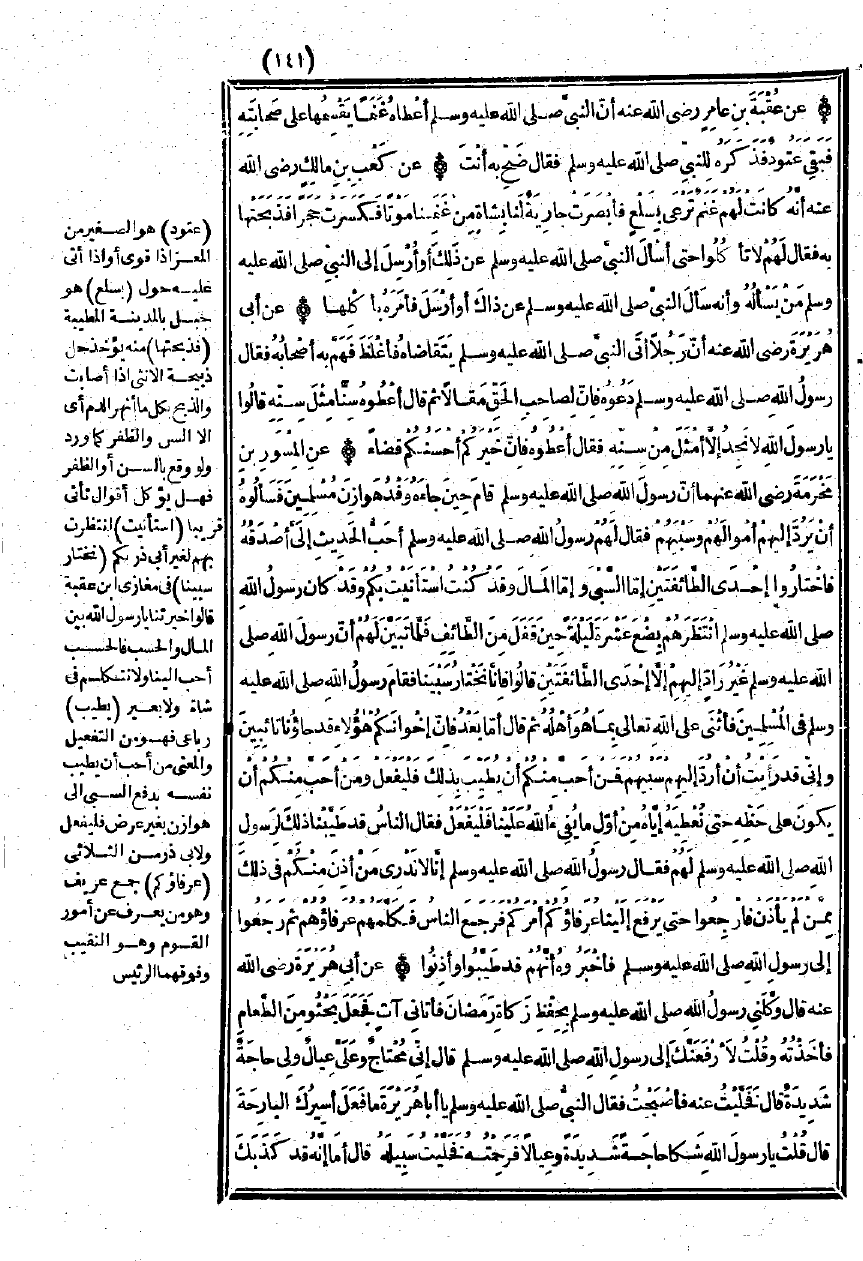 (١٤١)
عن عُقْبَةَ بنِ عامِرٍ رضى الله عنه أنّ النبىَّ صلى الله عليه وسلم أعْطاهُ غَنَمًا يَقْسِمُها على صَحابَتِه
فَبَقِىَ عَتُودٌ فَذَكَرَه للنبىِّ صلى الله عليه وسلم فقال ضَحِّ به أنْتَ عن كَعْبِ بنِ مالِكٍ رضى الله
عنه أنَّهُ كانَتْ لَهُم غَنَمٌ تَرْعَى بِسَلْعٍ فأبْصَرَتْ جارِيَةٌ لَنا بِشاةٍ مِنْ غَنَمِنا مَوْتًا فَكَسَرَتْ حَجَرًا فَذَبَحَتْها
به فقال لَهُمْ لا تأكُلُوا حتى أسألَ النبىَّ صلى الله عليه وسلم عن ذَلِكَ أو أُرْسِلَ إلى النبىِّ صلى الله عليه
وسلم مَنْ يَسْألُهُ وأنه سَألَ النبىَّ صلى الله عليه وسلم عن ذاكَ أو أرْسَلَ فأمَرَهُ بأكْلِها عن أبى
هُرَيْرَةَ رضى الله عنه أنّ رَجُلًا أتَى النبىَّ صلى الله عليه وسلم يَتَقاضاهُ فأغْلَظَ فَهَمَّ به أصْحابُهُ فقال
رسولُ اللهِ صلى الله عليه وسلم دَعُوهُ فإنّ لِصاحِبِ الحَقِّ مَقالًا ثم قال أعْطُوهُ سِنًّا مِثْلَ سِنِّهِ قالُوا
يا رسولَ اللهِ لا نَجِدُ إلّا أمْثَلَ مِنْ سِنِّهِ فقال أعْطُوهُ فإنّ خَيْرَكُم أحسنُكُم قَضاءً عن المِسْوَرِ بنِ
مَخْرَمَةَ رضى الله عنهما أنّ رسولَ اللهِ صلى الله عليه وسلم قامَ حِينَ جاءَهُ وَفْدُ هَوازِنَ مُسْلِمِينَ فَسَألُوهُ
أنْ يَرُدَّ إليهِمْ أموالَهُم وسَبْيَهُم فقال لَهُمْ رسولُ اللهِ صلى الله عليه وسلم أحَبُّ الحَدِيثِ إلَىَّ أصْدَقُهُ
فاخْتارُوا إحْدَى الطَّائِفَتَيْنِ إمّا السَّبْىَ وإمّا المالَ وقَدْ كُنْتُ اسْتَأْنَيْتُ بِكُمْ وقَدْ كان رسولُ اللهِ
صلى الله عليه وسلم انْتَظَرَهُم بِضْعَ عَشْرَةَ لَيْلَةً حِينَ قَفَلَ مِنَ الطّائِفِ فَلَمَّا تَبَيَّنَ لَهُمْ أنّ رسولَ اللهِ صلى
الله عليه وسلم غَيْرُ رَادٍّ إليهِمْ إلّا إحْدَى الطّائِفَتَيْنِ قالُوا فإنّا نَخْتارُ سَبْيَنا فقامَ رسولُ اللهِ صلى الله عليه
وسلم فى المُسْلِمِينَ فأثْنَى على اللهِ تعالى بِما هو أهْلُهُ ثم قال أمّا بَعْدُ فإنّ إخْوانَكُم هؤُلاءِ قد جاؤُنا تائِبِينَ
وإنى قد رَأيْتُ أنْ أرُدَّ إليهِم سَبْيَهُم فَمَنْ أحَبَّ مِنْكُمْ أنْ يُطَيِّبَ بِذَلِكَ فَلْيَفْعَلْ ومَنْ أحَبَّ مِنْكُم أنْ
يكونَ على حَظِّهِ حتى نُعْطِيَهُ إيّاهُ مِنْ أوّلِ ما يُفِىءُ اللهُ عَلَيْنا فَلْيَفْعَلْ فقال الناسُ قد طَيَّبْنا ذلكَ لِرسولِ
اللهِ صلى الله عليه وسلم لَهُمْ فقال رسولُ اللهِ صلى الله عليه وسلم إنّا لا نَدْرِى مَنْ أذِنَ مِنْكُم فى ذلكَ
مِمَّنْ لَمْ يأذَنْ فارْجِعُوا حتى يَرْفَعَ إلَيْنا عُرَفاؤُكُم أمْرَكُم فرجَعَ الناسُ فَكَلَّمَهُم عُرَفاؤُهُم ثم رَجَعُوا
إلى رسولِ اللهِ صلى الله عليه وسلم فأخْبَرُوهُ أنَّهُم قد طَيَّبُوا وأذِنُوا عن أبى هُرَيْرَةَ رضى الله
عنه قال وَكَّلَنِى رسولُ اللهِ صلى الله عليه وسلم بِحِفْظِ زَكاةِ رَمَضانَ فأتانِى آتٍ فَجَعَلَ يَحْثُو مِنَ الطَّعامِ
فأخَذْتُهُ وقُلْتُ لَأرْفَعَنَّكَ إلى رسولِ اللهِ صلى الله عليه وسلم قال إنّى مُحْتاجٌ وعَلَىَّ عِيالٌ ولِى حاجَةٌ
شَدِيدَةٌ قال فَخَلَّيْتُ عنه فأصْبَحْتُ فقال النبىُّ صلى الله عليه وسلم يا أبا هُرَيْرَةَ ما فَعَلَ أسِيرُكَ البارِحَةَ
قال قُلْتُ يا رسولَ اللهِ شَكا حاجَةً شَدِيدَةً وعِيالًا فَرَحِمْتُه فَخَلَّيْتُ سَبِيلَهُ قال أمَا إنَّه قد كَذَبَكَ
(عتود) هو الصغير من
المعز اذا قوى أو اذا أتى
عليه حول (بسلع) هو
جبل بالمدينة المطيبة
(فذبحتها) منه يؤخذ حل
ذبيحة الانثى اذا أصابت
والذبح بكل ما أنهر الدم أى
الا السن والظفر كما ورد
ولو وقع بالسن أو الظفر
فهل يؤكل أقوال تأتى
قريبا (استأنيت) انتظرت
بهم لغير أبى ذر بكم (نختار
سبينا) فى مغازى ابن عقبة
قالوا خيرتنا يا رسول الله بين
المال والحسب فالحسب
أحب الينا ولا نتكلم فى
شاة ولا بعير (يطيب)
رباعى فهو من التفعيل
والمعنى من أحب أن يطيب
نفسه بدفع السبى الى
هوازن بغير عوض فليفعل
ولابى ذر من الثلاثى
(عرفاؤكم) جمع عريف
وهو من يعرف عن أمور
القوم وهو النقيب
وفوقهما الرئيس